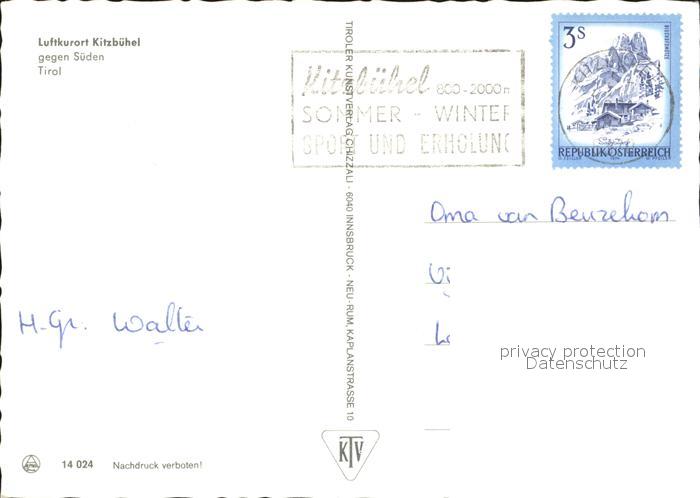 Luftkurort Kitzbühel
gegen Süden
Tirol
Kitzbühel 800-2000m
SOMMER - WINTER
SPORT UND ERHOLUNG
3S
REPUBLIK ÖSTERREICH
TIROLER KUNSTVERLAG CHIZZALI - 6040 INNSBRUCK - NEU-RUM, KAPLANSTRASSE 10
Oma van Beuzekom
H. Gr. Walter
privacy protection
Datenschutz
KTV
14 024 Nachdruck verboten!